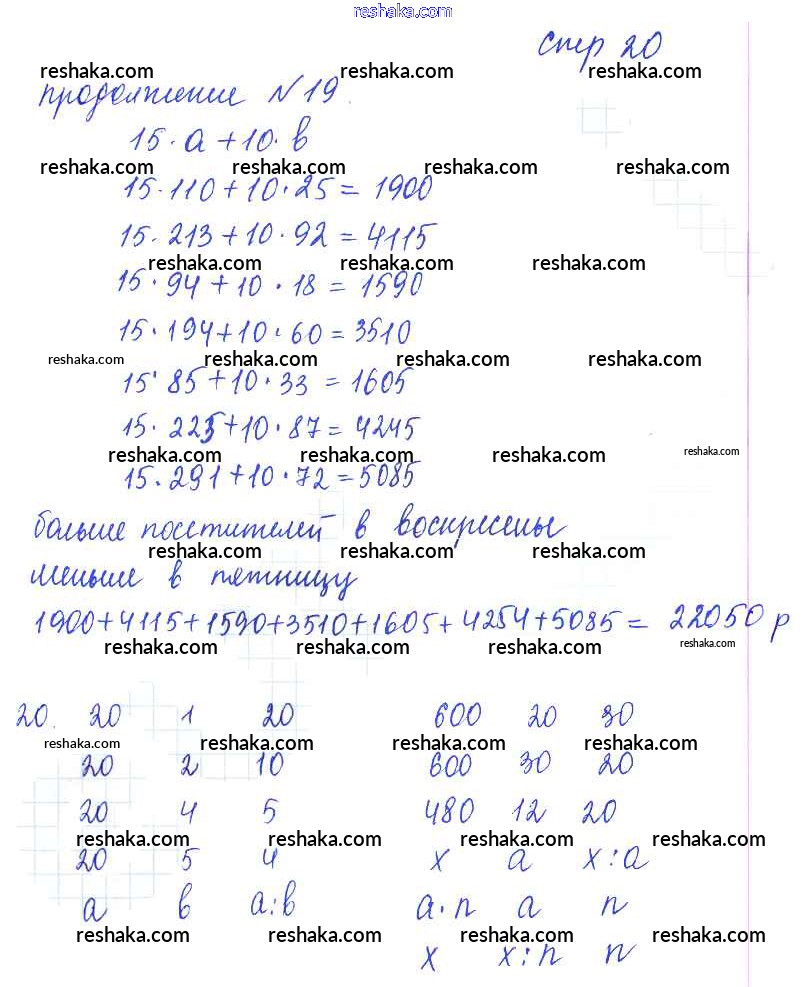 reshaka.com
стр 20
reshaka.com reshaka.com reshaka.com
продолжение N 19.
15·a+10·b
reshaka.com reshaka.com reshaka.com reshaka.com
15·110+10·25=1900
15·213+10·92=4115
reshaka.com reshaka.com reshaka.com
15·94+10·18=1590
15·194+10·60=3510
reshaka.com reshaka.com reshaka.com reshaka.com
15·85+10·33=1605
15·225+10·87=4245
reshaka.com reshaka.com reshaka.com reshaka.com
15·291+10·72=5085
больше посетителей в воскресенье
reshaka.com reshaka.com reshaka.com
меньше в пятницу
1900+4115+1590+3510+1605+4254+5085=22050 р
reshaka.com reshaka.com reshaka.com reshaka.com
20. 20 1 20 600 20 30
reshaka.com reshaka.com reshaka.com reshaka.com
20 2 10 600 30 20
20 4 5 480 12 20
reshaka.com reshaka.com reshaka.com reshaka.com
20 5 4 x a x:a
a b a:b a·n a n
reshaka.com reshaka.com reshaka.com reshaka.com
x x:n n